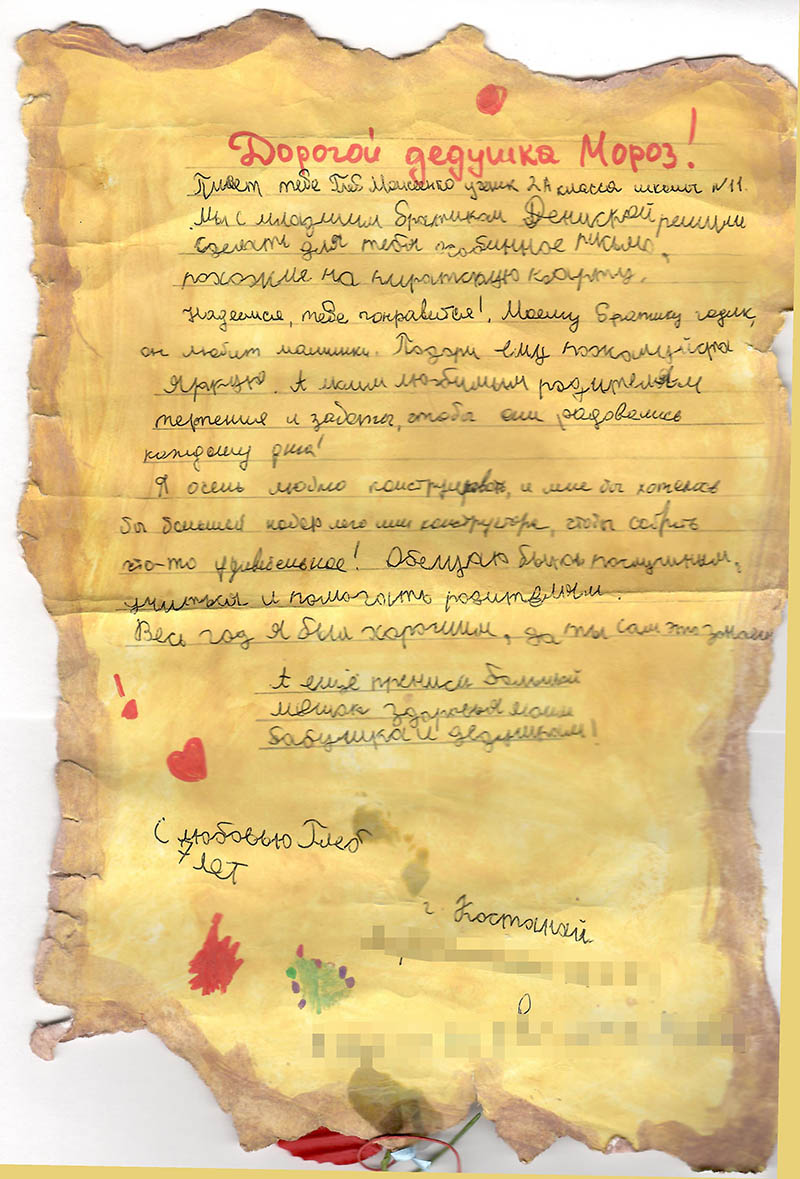 Дорогой дедушка Мороз!
Привет тебе Глеб Моисеенко ученик 2А класса школы №11.
Мы с младшим братиком Дениской решили
сделать для тебя особинное письмо,
похожие на пиратскую карту.
Надеемся, тебе понравится!. Моему братику годик,
он любит машинки. Подари ему пожалуйста
яркую. А моим любимым родителям
терпения и заботы, чтобы они радовались
каждому дню!
Я очень люблю конструировать, и мне бы хотелось
бы большой набор лего или конструктора, чтобы собрать
что-то удивительное! Обещаю быть послушным,
учиться и помогать родителям.
Весь год я был хорошим, да ты сам это знаешь
А ещё принеси большой
мешок здоровья моим
бабушка и дедушкам!
С любовью Глеб
7 лет
г. Костанай